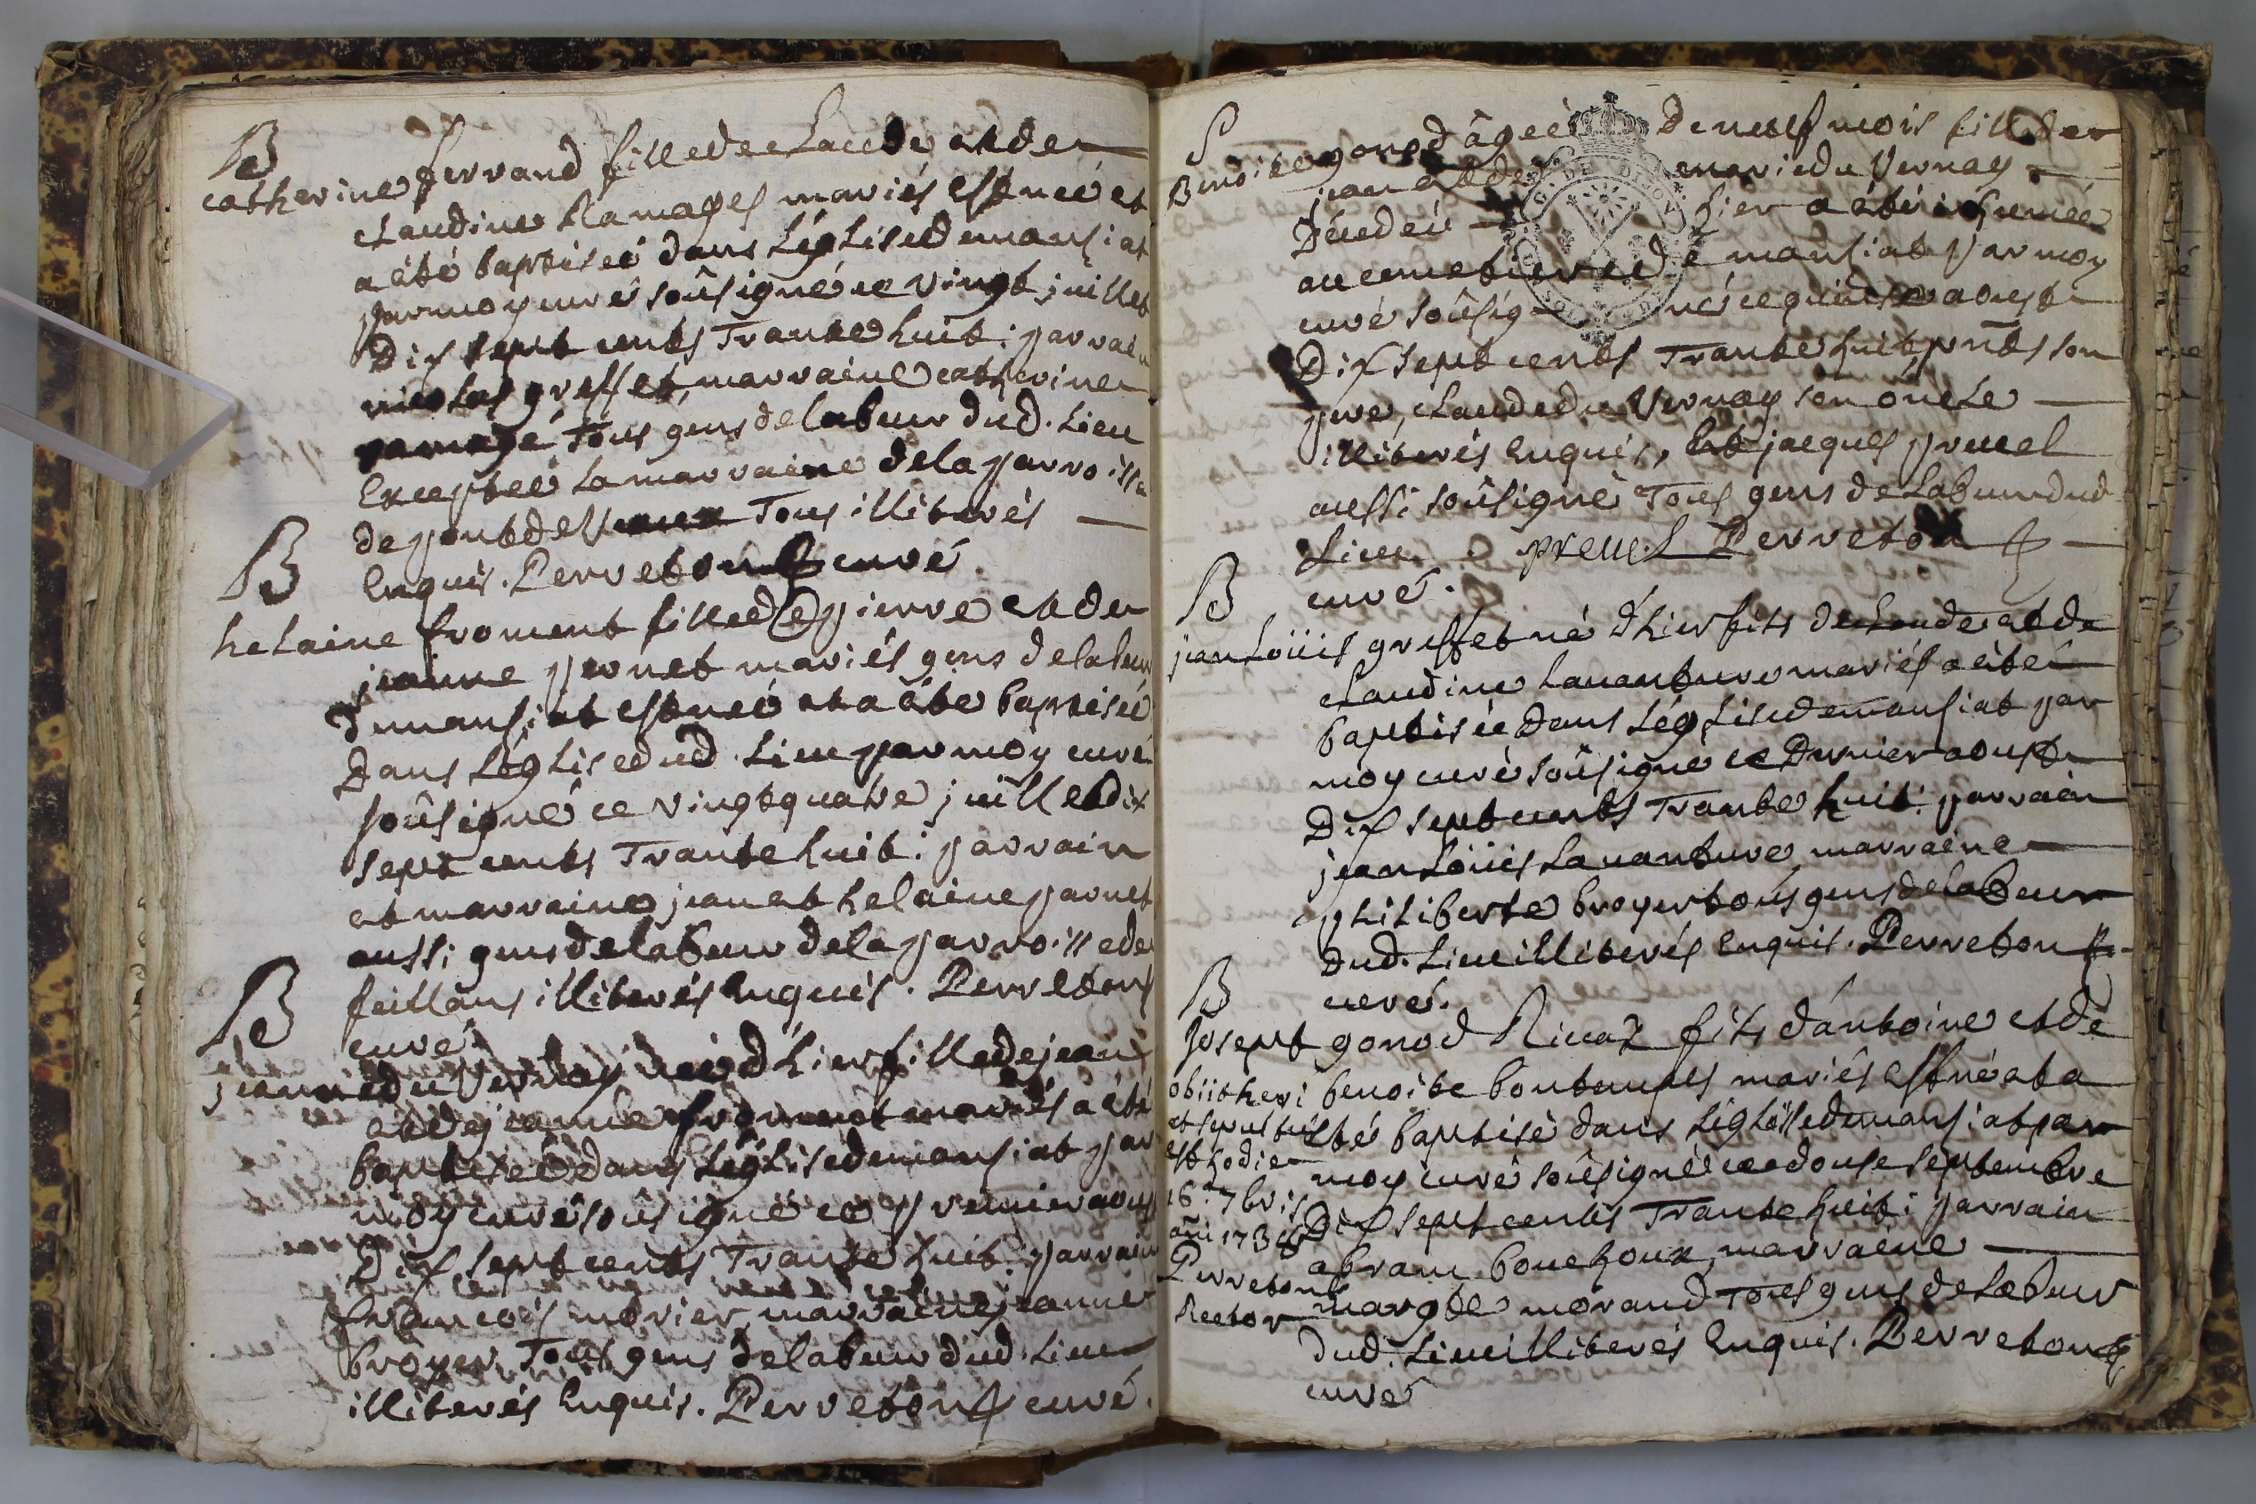 B
catherine ferrand fille de claude et de
claudine Ramages mariés est neé et
a été baptiseé dans L'église de mansiat
par moy curé soûsigné ce vingt juillet
Dix sept cents Trante huit : parrain
nicolas greffet, marraine catherine
ramage Tous gens de labeur dud. Lieu
Exceptée La marraine de la parroisse
de pont de Tous illiterés
Enquis. Perreton curé.
B
helaine froment fille de pierre et de
jeanne pernet mariés gens de labeur
De mansiat est neé et a été baptiseé
Dans L'église dud. Lieu par moy curé
soûsigné ce vingt quatre juillet dix
sept cents Trante huit : parrain
et marraine jean et helaine parnet
aussi gens de labeur de la parroisse de
feillans illiterés Enquis. Perreton
curé.
B
jeanne du Vernay neé d'hier fille de jean
et de jeanne froment mariés a été
baptiseé dans L'église de mansiat par
moy curé soûsigné ce premier aoust
Dix sept cents Trante huit : parrain
francois morier, marraine jeanne
broyer Tous gens de labeur dud. Lieu
illiterés Enquis. Perreton curé.
S
Benoite gonod âgeé De neuf mois fille de
jean et de marie du Vernay
Décedeé hier a été inhumeé
au cemetiere de mansiat par moy
curé soûsigné ce quinse aoust
Dix sept cents Trante huit pnts son
pere, claude du Vernay son oncle
illiterés Enquis, Et jacques preuel
aussi soûsigné Tous gens de Labeur dud
Lieu. preuel Perreton
curé.
B
jean Loüis greffet né d'hier fils de claude et de
claudine Lauanture mariés a été
baptisée dans L'église de mansiat par
moy curé soûsigné ce Dernier aoust
Dix sept cents Trante huit : parrain
jean Loüis Lauanture, marraine
philiberte broyer tous gens de labeur
dud. Lieu illiterés Enquis. Perreton
curé.
B
Josept gonod Ricat fils d'antoine et de
benoite bontemps mariés est né et a
été baptisé dans L'église de mansiat par
moy curé soûsigné ce douse septembre
Dix sept cents Trante huit : parrain
abram bouchoux, marraine
margte morand Tous gens de labeur
dud. Lieu illiterés Enquis. Perreton
curé
obiit heri
et sepultus
est hodie
16a 7bris
ani 1738
Perreton
Rector